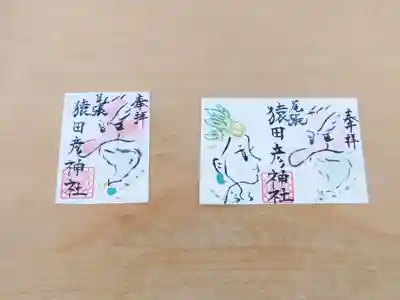 奉拝
尾張
猿田彦神社
奉拝
尾張
猿田彦神社